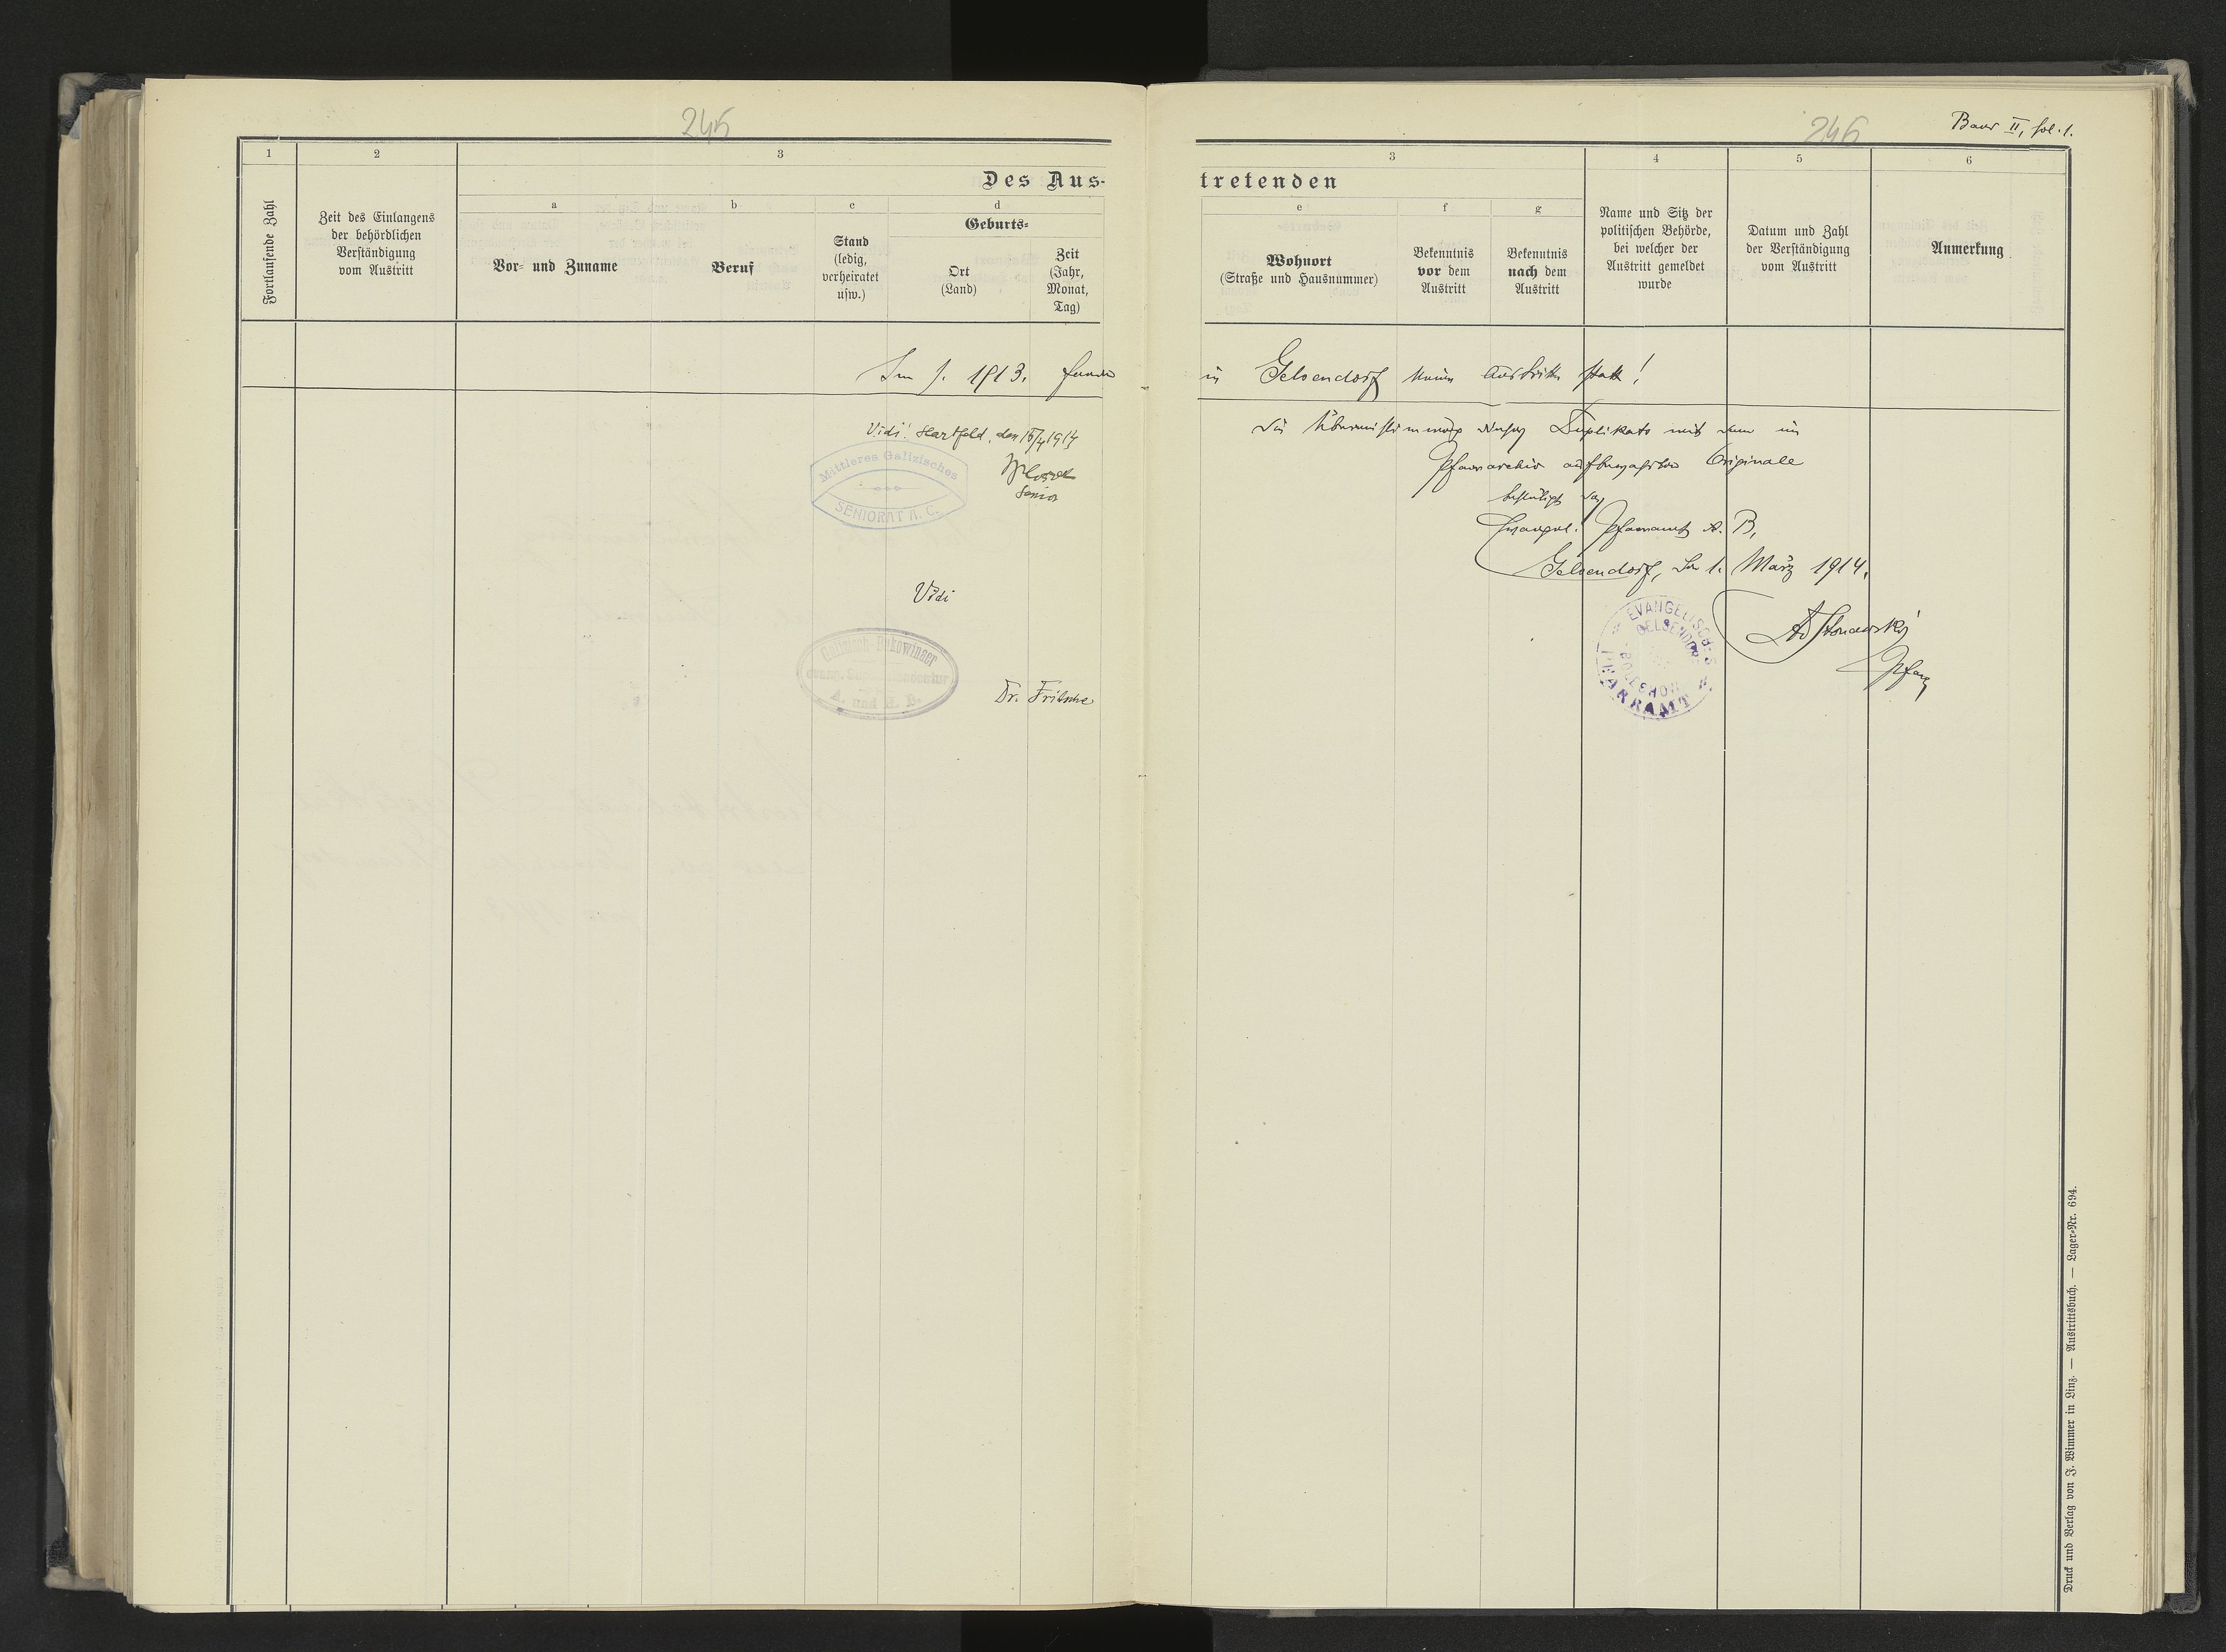 245
246
Band II, fol. 1.
1
2
3
3
4
5
6
Des Aus-
tretenden
Fortlaufende Zahl
Zeit des Einlangens
der behördlichen
Verständigung
vom Austritt
a
Vor- und Zuname
b
Beruf
c
Stand
(ledig,
verheiratet
usw.)
d
Geburts-
Ort
(Land)
Zeit
(Jahr,
Monat,
Tag)
e
Wohnort
(Straße und Hausnummer)
f
Bekenntnis
vor dem
Austritt
g
Bekenntnis
nach dem
Austritt
Name und Sitz der
politischen Behörde,
bei welcher der
Austritt gemeldet
wurde
Datum und Zahl
der Verständigung
vom Austritt
Anmerkung
Im J. 1913. fanden
in Gelsendorf keine Austritte statt!
Vidi! Hartfeld, den 15/4 1914
Senior
Mittleres Galizisches
SENIORAT A. C.
Vidi
Galizisch Bukowinaer
evang. Superintendentur
A. und H. B.
Dr. Fritsche
Die Übereinstimmung dieses Duplikats mit dem im
Pfarrarchiv aufbewahrten Originale
bestätigt das
Evangel. Pfarramt A. B.
Gelsendorf, den 1. März 1914.
Pfarrer
EVANGELISCHES
PFARRAMT
GELSENDORF
Druck und Verlag von J. Wimmer in Linz. — Austrittsbuch. — Lager-Nr. 694.